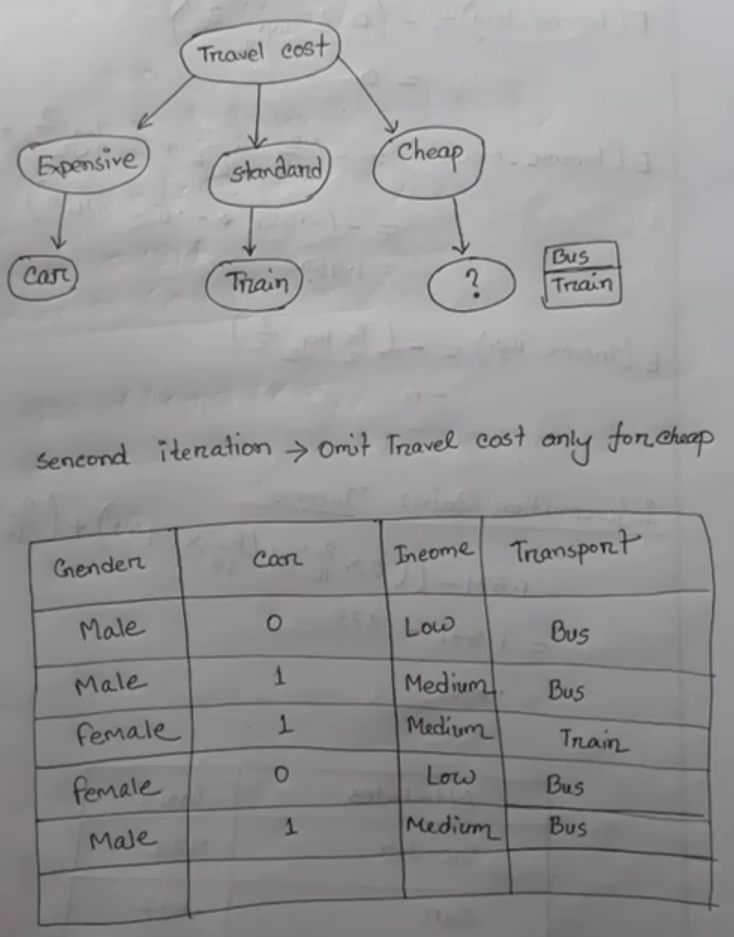 Travel cost
Expensive
standard
Cheap
Car
Train
?
Bus
Train
sencond iteration → omit Travel cost only for cheap
Gender Car Income Transport
Male 0 Low Bus
Male 1 Medium Bus
female 1 Medium Train
female 0 Low Bus
Male 1 Medium Bus